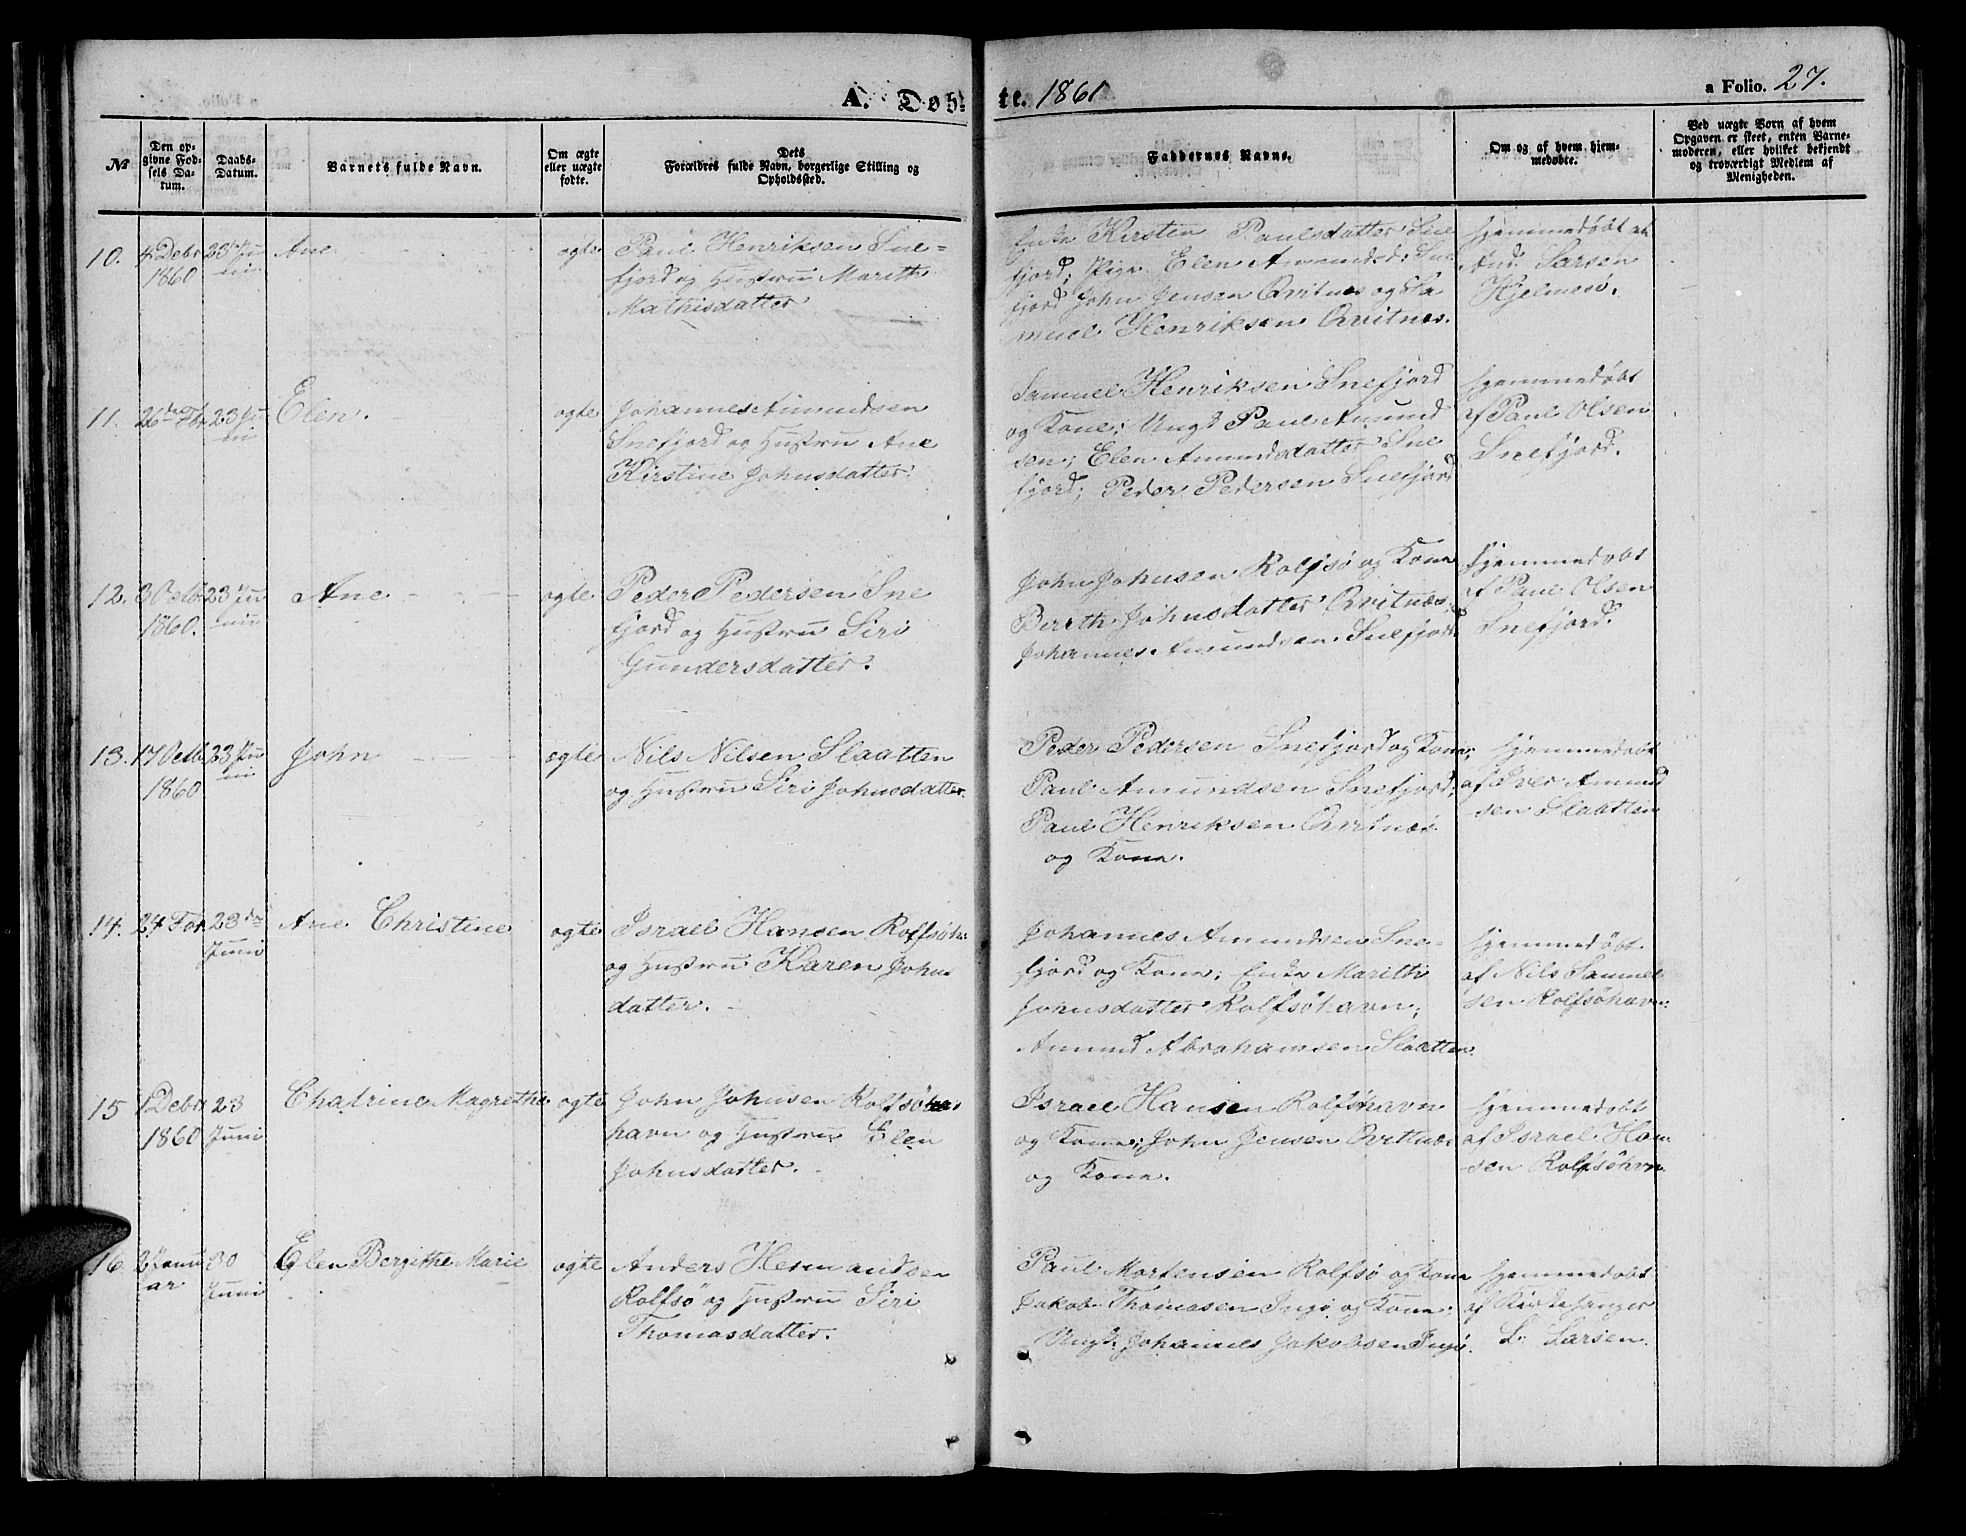 A. Døb-
te. 1861
a Folio. 27.
№
Den op-
givne Fød-
sels Da-
tum.
Daabs-
Datum.
Barnets fulde Navn.
Om ægte
eller uægte
fødte.
Dets
Forældres fulde Navn, borgerlige Stilling og
Opholdssted.
Faddernes Navne.
Om og af hvem hjem-
medøbte.
Ved uægte Børn af hvem
Opgaven er skeet, enten Barne-
moderen, eller hvilket bekjendt
og troværdigt Medlem af
Menigheden.
10.
4 Debr
1860
23de Ju
ni
Ane
ægte
Paul Henriksen Sne-
fjord og Hustru Marith
Mathisdatter
Enke Kirsten Paulsdatter Sne
fjord; Pige Elen Amundsd: Sne
fjord John Jensen Qvitnes og Sa
muel Henriksen Qvitnes.
hjemmedøbt af
And. Larsen
Hjelmsø.
11.
26de Fbr
23 Ju
ni
Elen.
ægte
Johannes Amundsen
Snefjord og Hustru Ane
Kirstine Johnsdatter.
Samuel Henriksen Snefjord
og Kone; Ungk Paul Amund
sen; Elen Amundsdatter Sne
fjord; Peder Pedersen Snefjord
hjemmedøbt
af Paul Olsen
Snefjord.
12.
3 Octbr
1860.
23 Ju
ni
Ane
ægte
Peder Pedersen Sne
fjord og Hustru Siri
Gundersdatter.
John Johnsen Rolfsø og Kone
Bereth Johnsdatter Qvitnæs;
Johannes Amundsen Snefjord.
hjemmedøbt
af Paul Olsen
Snefjord.
13.
17 Octb.
1860
23 Ju
ni
John
ægte
Nils Nilsen Slaatten
og Hustru Siri Johnsdatter.
Peder Pedersen Snefjord og Kone;
Paul Amundsen Snefjord;
Paul Henriksen Qvitnæs
og Kone.
hjemmedøbt
af Iver Amund
sen Slaatten
14.
24 Febr
23de
Juni
Ane Christine
ægte
Israel Hansen Rolfsøh:
og Hustru Karen Johns
datter.
Johannes Amundsen Sne-
fjord og Kone; Enke Marith
Johnsdatter Rolfsøhavn;
Amund Abrahamsen Slaatten.
hjemmedøbt
af Nils Samuel
sen Rolfsøhavn:
15
1 Debr
1860
23
Juni
Chatrine Magrethe
ægte
John Johnsen Rolfsø
havn og Hustru Elen
Johnsdatter.
Israel Hansen Rolfsøhavn
og Kone; John Jensen Qvitnæs
og Kone.
hjemmedøbt
af Israel Han
sen Rolfsøhvn
16.
2 Janu
ar
30
Juni
Elen Bergithe Marie
ægte
Anders Hermandsen
Rolfsø og Hustru Siri
Thomasdatter.
Paul Mortensen Rolfsø og Kone
Jakob Thomasen Ingø og Kone;
Ungk. Johannes Jakobsen Ingø.
hjemmedøbt
af Kirkesanger
L. Larsen.